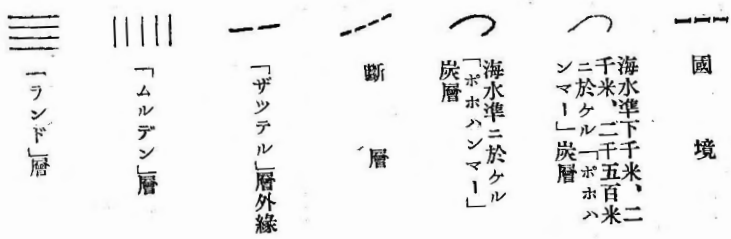 國境
海水準下千米、二
千米、二千五百米
ニ於ケル「ポホハ
ンマー」炭層
海水準ニ於ケル
「ポホハンマー」
炭層
斷層
「ザツテル」層外緣
「ムルデン」層
「ランド」層